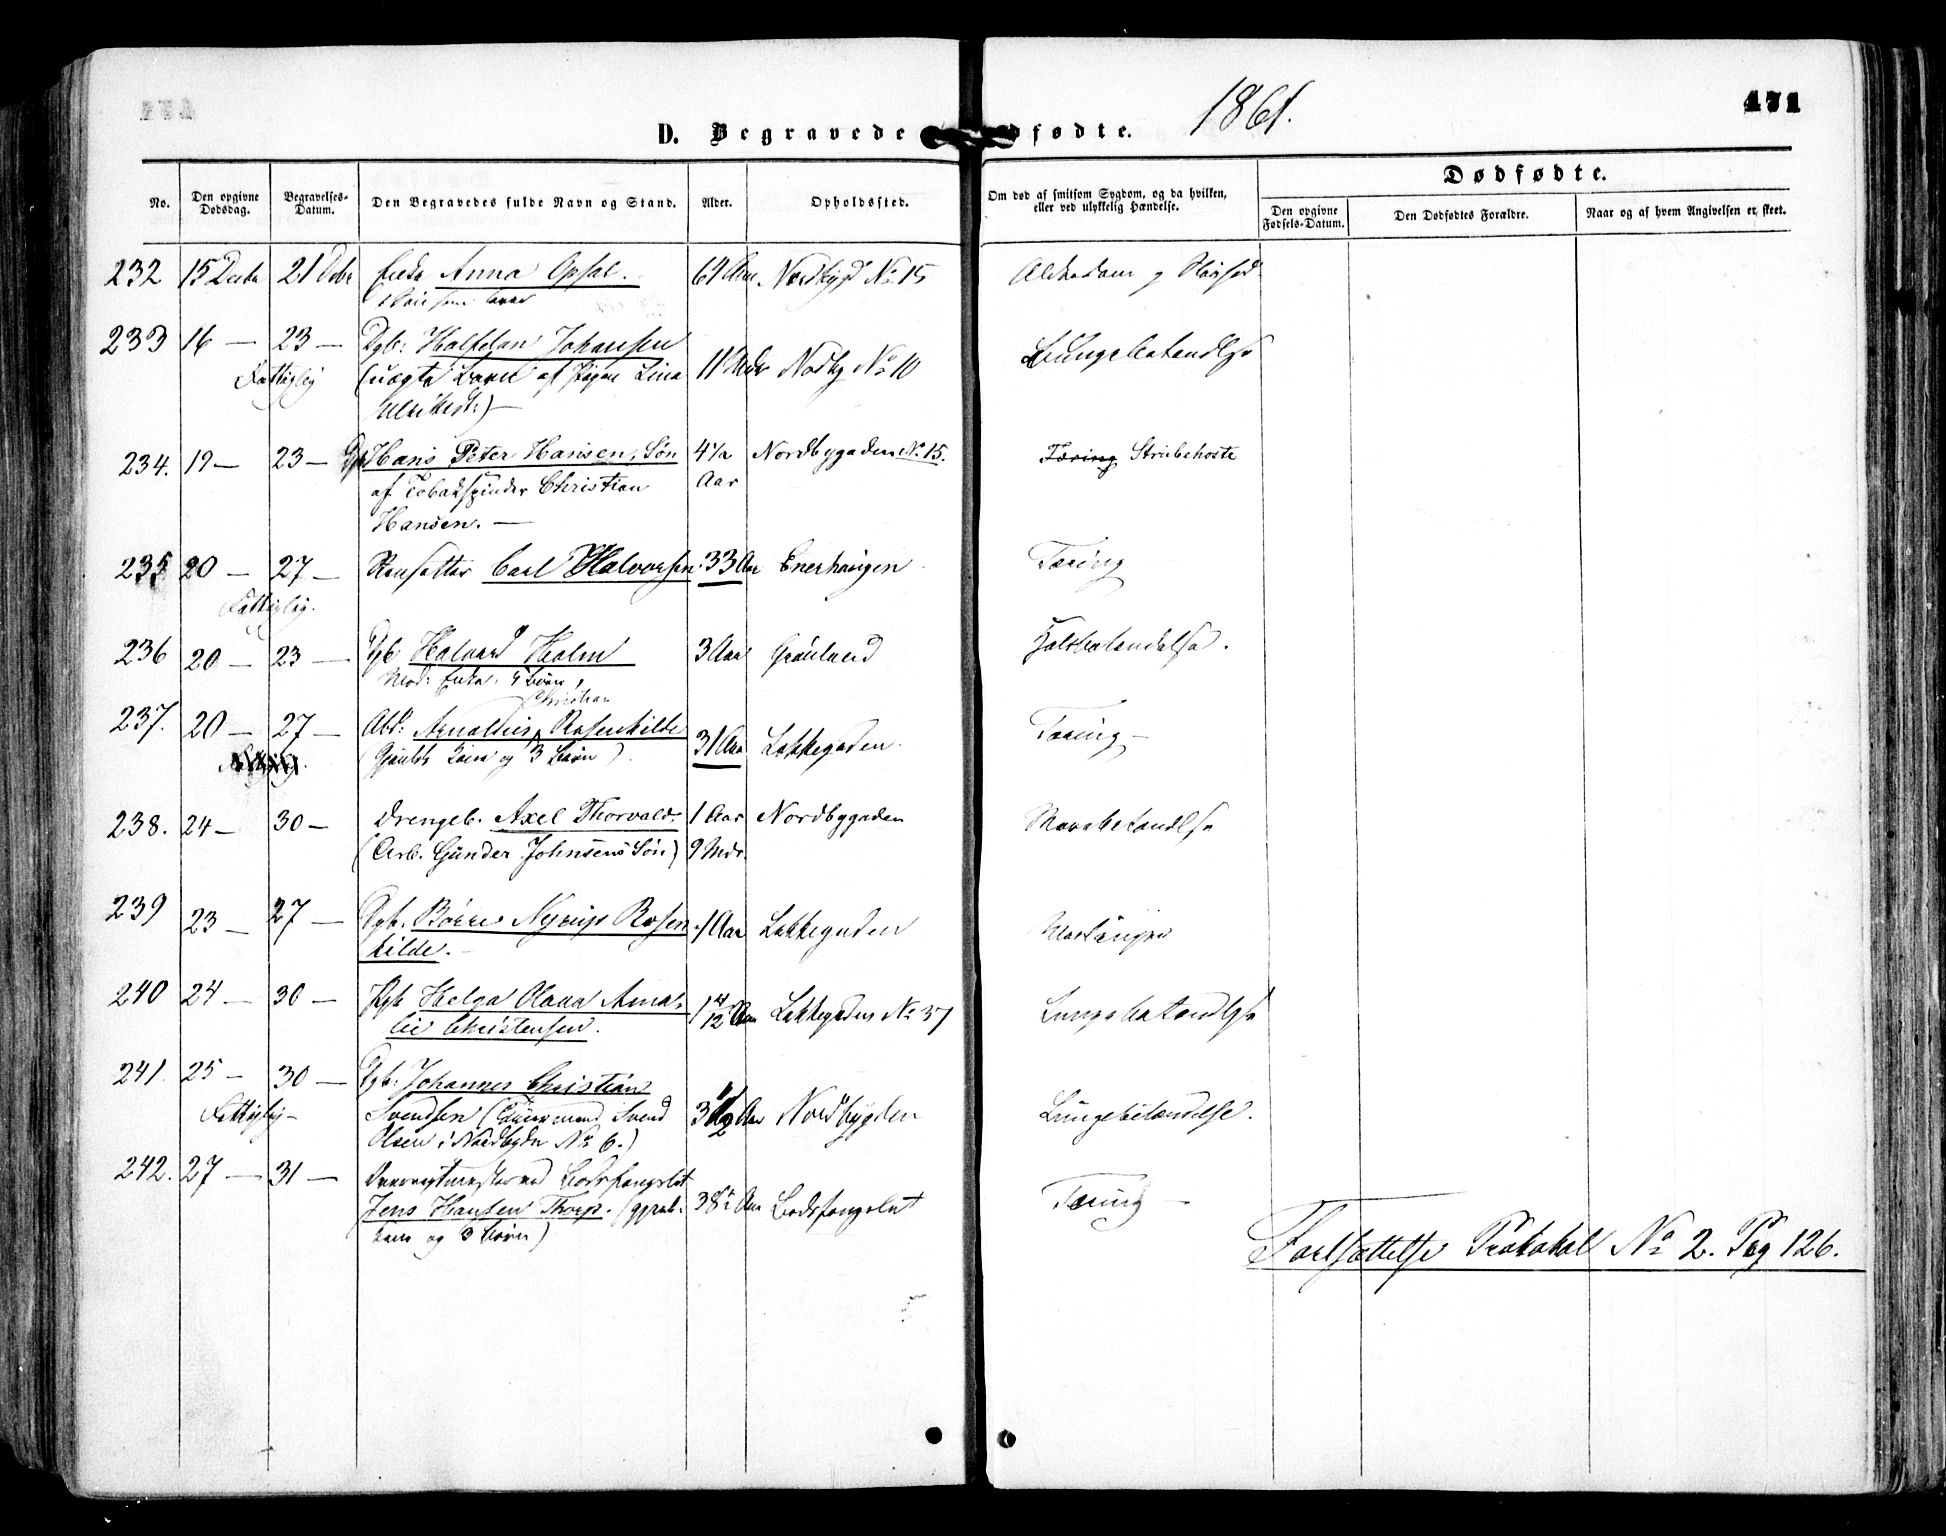 471
1861.
D. Begravede
dfødte.
Dødfødte.
No.
Den opgivne Dødsdag.
Begravelses-Datum.
Den Begravedes fulde Navn og Stand.
Alder.
Opholdssted.
Om død af smitsom Sygdom, og da hvilken, eller ved ulykkelig Hændelse.
Den opgivne Fødsels-Datum.
Den Dødfødtes Forældre.
Naar og af hvem Angivelsen er skeet.
232 15 Decbr 21 Dcbr Enke Anna Opsal. 64 Aar. Nordbygd No 15 Alderdom
233 16 — 23 — Dgb: Halfdan Johansen 11 Mdr Nodby No 10 Lungebetændlse
Fattiglig (uægte Barn af Pigen Lina
234. 19 — 23 — Hans Peter Hansen, Søn 4½ Aar Nordbygaden No 15. Tæring Strubehoste
af Tobakspinder Christian
Hansen. —
235 20 — 27 — Carl Halvorsen 33 Aar Enerhaugen Tæring
Fattiglig.
236 20 — 23 — Dgb Halvard Holm 3 Aar Grønland Halsbetændelse.
Mod: Enke. 4 Børn,
Christian
237. 20 — 27 — Arb: Arnoldus Rosenkilde 31 Aar Lakkegaden. Tæring —
og 3 Børn)
238. 24 — 30 — Drengeb. Axel Thorvald, 1 Aar Nordbygaden Mavebetændlse
(Arb. Gunder Johnsens Søn) 9 Mdr.
239 23 — 27 — Dgb. Børre Nyrup Rosen 1 Aar Lakkegaden
kilde. —
240 24 — 30 — Pgb Helga Olava Ama- 1 4/12 Aar Lakkegaden No 37 Lungebetændlse
lie Christensen.
241. 25 — 30 — Dgb: Johannes Christian 3½ Aar Nordbygden Lungebetændelse.
Fattiglig — Svendsen ( Svend
Olsen i Nordbygdn No 6.)
242. 27 — 31 — Bodsfængslet
Jens Hansen Thorp. 38½ Aar Bodsfængslet Tæring —
og 3 Børn)
Fortsættelse Protokol No 2. Pag 126.